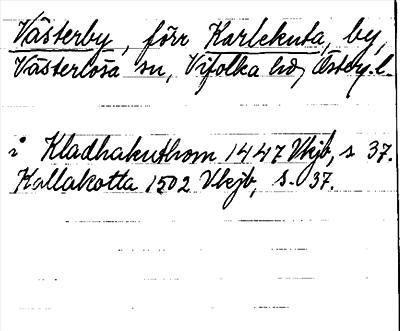 Västerby, förr Karlekuta, by,
Västerlösa sn, Vifolka hd, Österg. l.
i Kladhakuthom 1447 Vkjb, s 37.
Kallakotta 1502 Vkjb, s. 37.